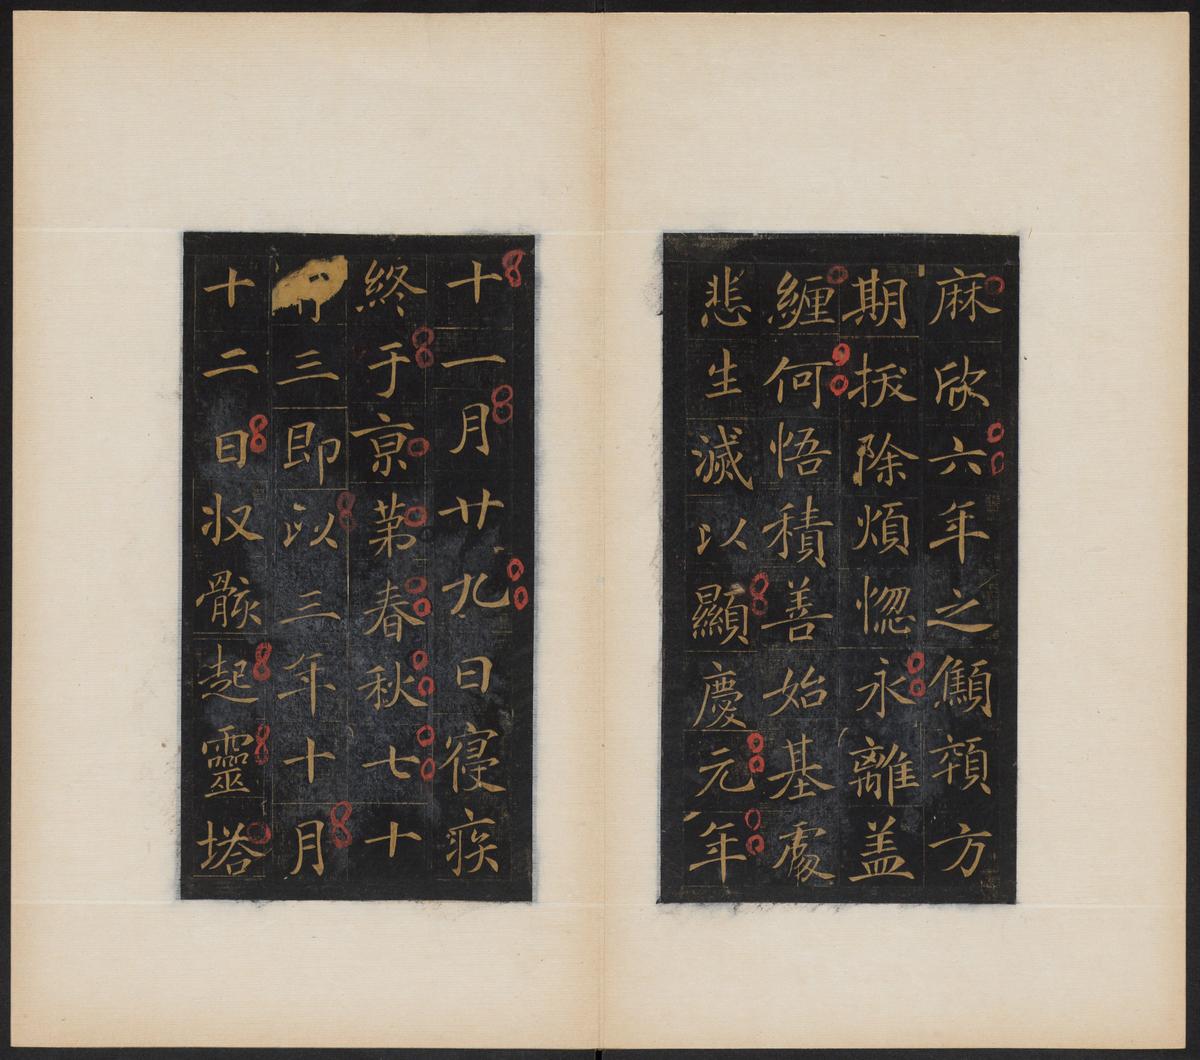 麻欣六年之顦顇方
期拔除煩惱永離盖
纏何悟積善始基
悲生滅以顯慶元年
十一月廿九日寑疾
終于亰第春秋七十
三即以三年十月
十二日収骸起靈塔